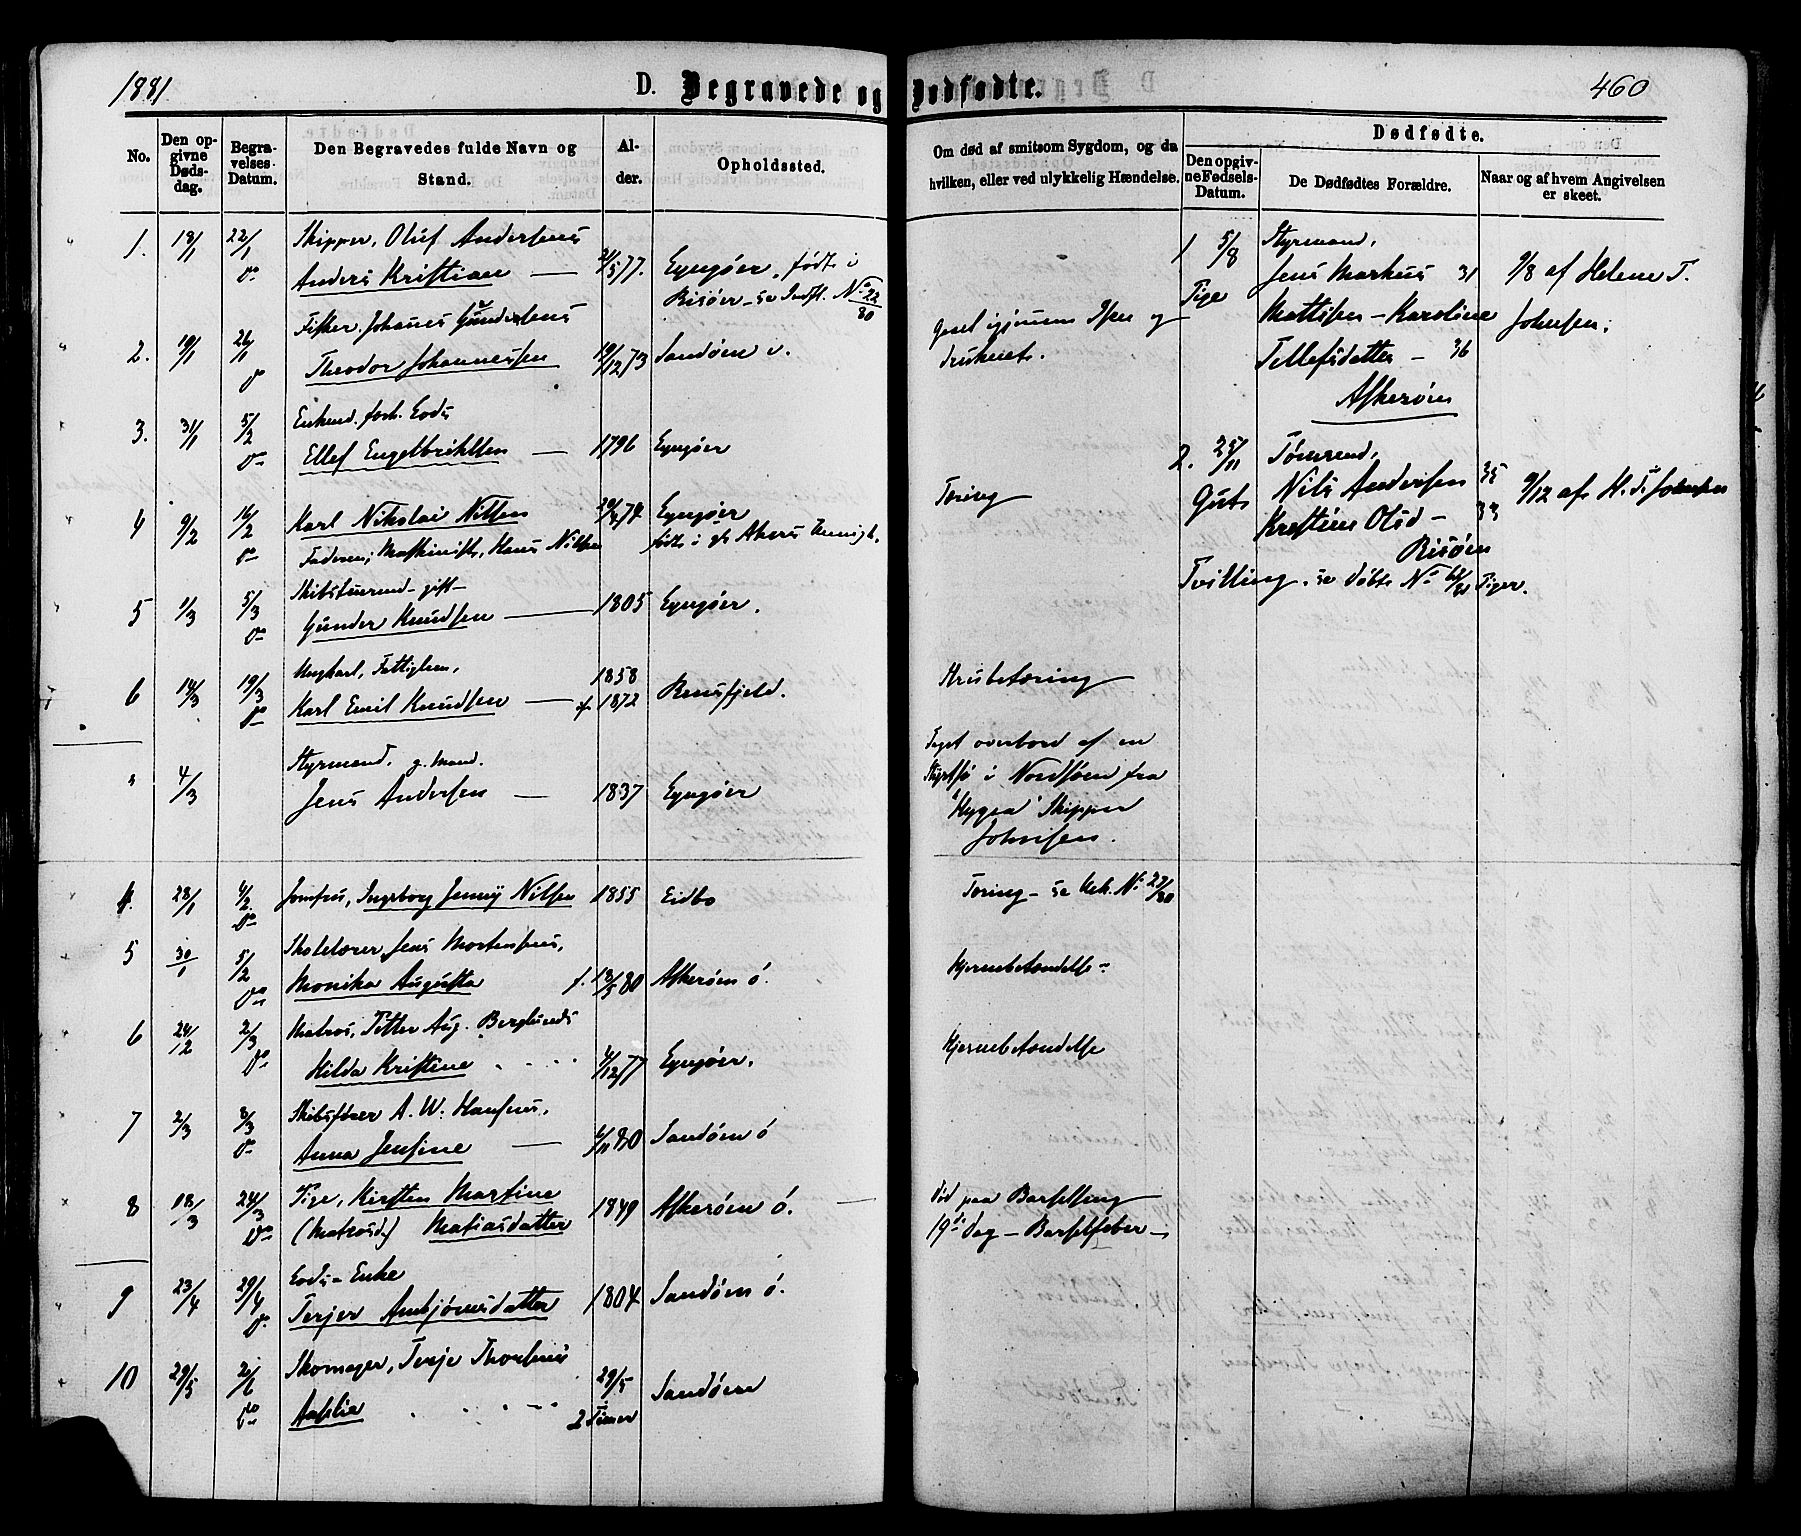 1881.
D. Begravede og Dødfødte.
460
No.
Den opgivne Dødsdag.
Begravelses-Datum.
Den Begravedes fulde Navn og Stand.
Alder.
Opholdssted.
Om død af smitsom Sygdom, og da hvilken, eller ved ulykkelig Hændelse.
Dødfødte.
Den opgivne Fødsels-Datum.
De Dødfødtes Forældre.
Naar og af hvem Angivelsen er skeet.
1. 18/1 22/1 Skipper, Oluf Andersens
do Anders Kristian — /5 77. Lyngøer, født i
Risøer – se Indfl. No 22/80
2. 19/1 26/1 Fisker Johanes Gundersens
do Theodor Johannessen 19/12 73 Sandøen v. Gaaet igjennem Isen og
druknet.
3. 31/1 5/2 Enkemd. forh. Lods
do Ellef Engelbriktsen — 1796 Lyngøer
4 9/2 16/2 Karl Nikolai Nilsen 74 Lyngøer Tæring
do Faderen; Maskinist, Hans Nilsen født i Akers
5 1/3 5/3 gift
do Gunder Knudsen — 1805 Lyngøer.
6 14/3 19/3 Ungkarl, Fattiglem, 1858
do Karl Emil Knudsen — 1872 Rensfjeld. Strubetæring
" 4/3 Styrmand, g. Mand.
Jens Andersen — 1837 Lyngøer
Taget overbord af en
Styrtsø i Nordsøen fra
"Hygea" Skipper
Johnsen.
4. 28/1 4/2 Jomfru, Ingeborg Jenny Nilsen 1855 Eidbo Tæring – se No 27/80
do
5 30/1 5/2 Skolelærer Jens Mortensens,
do Monika Augusta f. 13/5 80 Askerøen ø. Hjernebetændelse
6 24/2 2/3 Matros, Petter Aug. Berglunds
do Hilda Kristine 4/12 77 Lyngøer. Hjernebetændelse
7 2/3 8/3 Skibsfører A. W. Hansens.
do Anna Jensine — /11 80 Sandøen ø
8 18/3 24/3 Pige, Kirsten Martine
do (Matrosd.) Matiasdatter 1849 Askerøen ø. Død paa Barselseng
19de Dag – Barselfeber –
9 23/4 29/4 Lods–Enke
do Terjer Anbjørnsdatter 1804 Sandøen ø.
10 29/5 2/6 Skomager, Terje Thorsens 29/5
do 2 Timer Sandøen
1 5/8 Styrmand,
Pige Jens Markus 31
Mattisen – Karoline
Tellefsdatter – 36
Askerøen
9/8 af Helene T.
Johnsen;
2. 25/11 Tømmermd,
Gut Nils Andersen 35
Kristine Olsd – 33
Risøen
9/12 af H. T. Johnsen
Tvilling. se døbte No Piger.